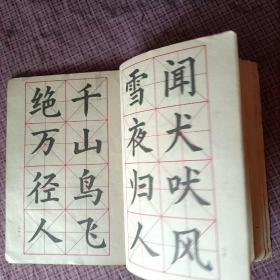 闻犬吠风
雪夜归人
千山鸟飞
绝万径人